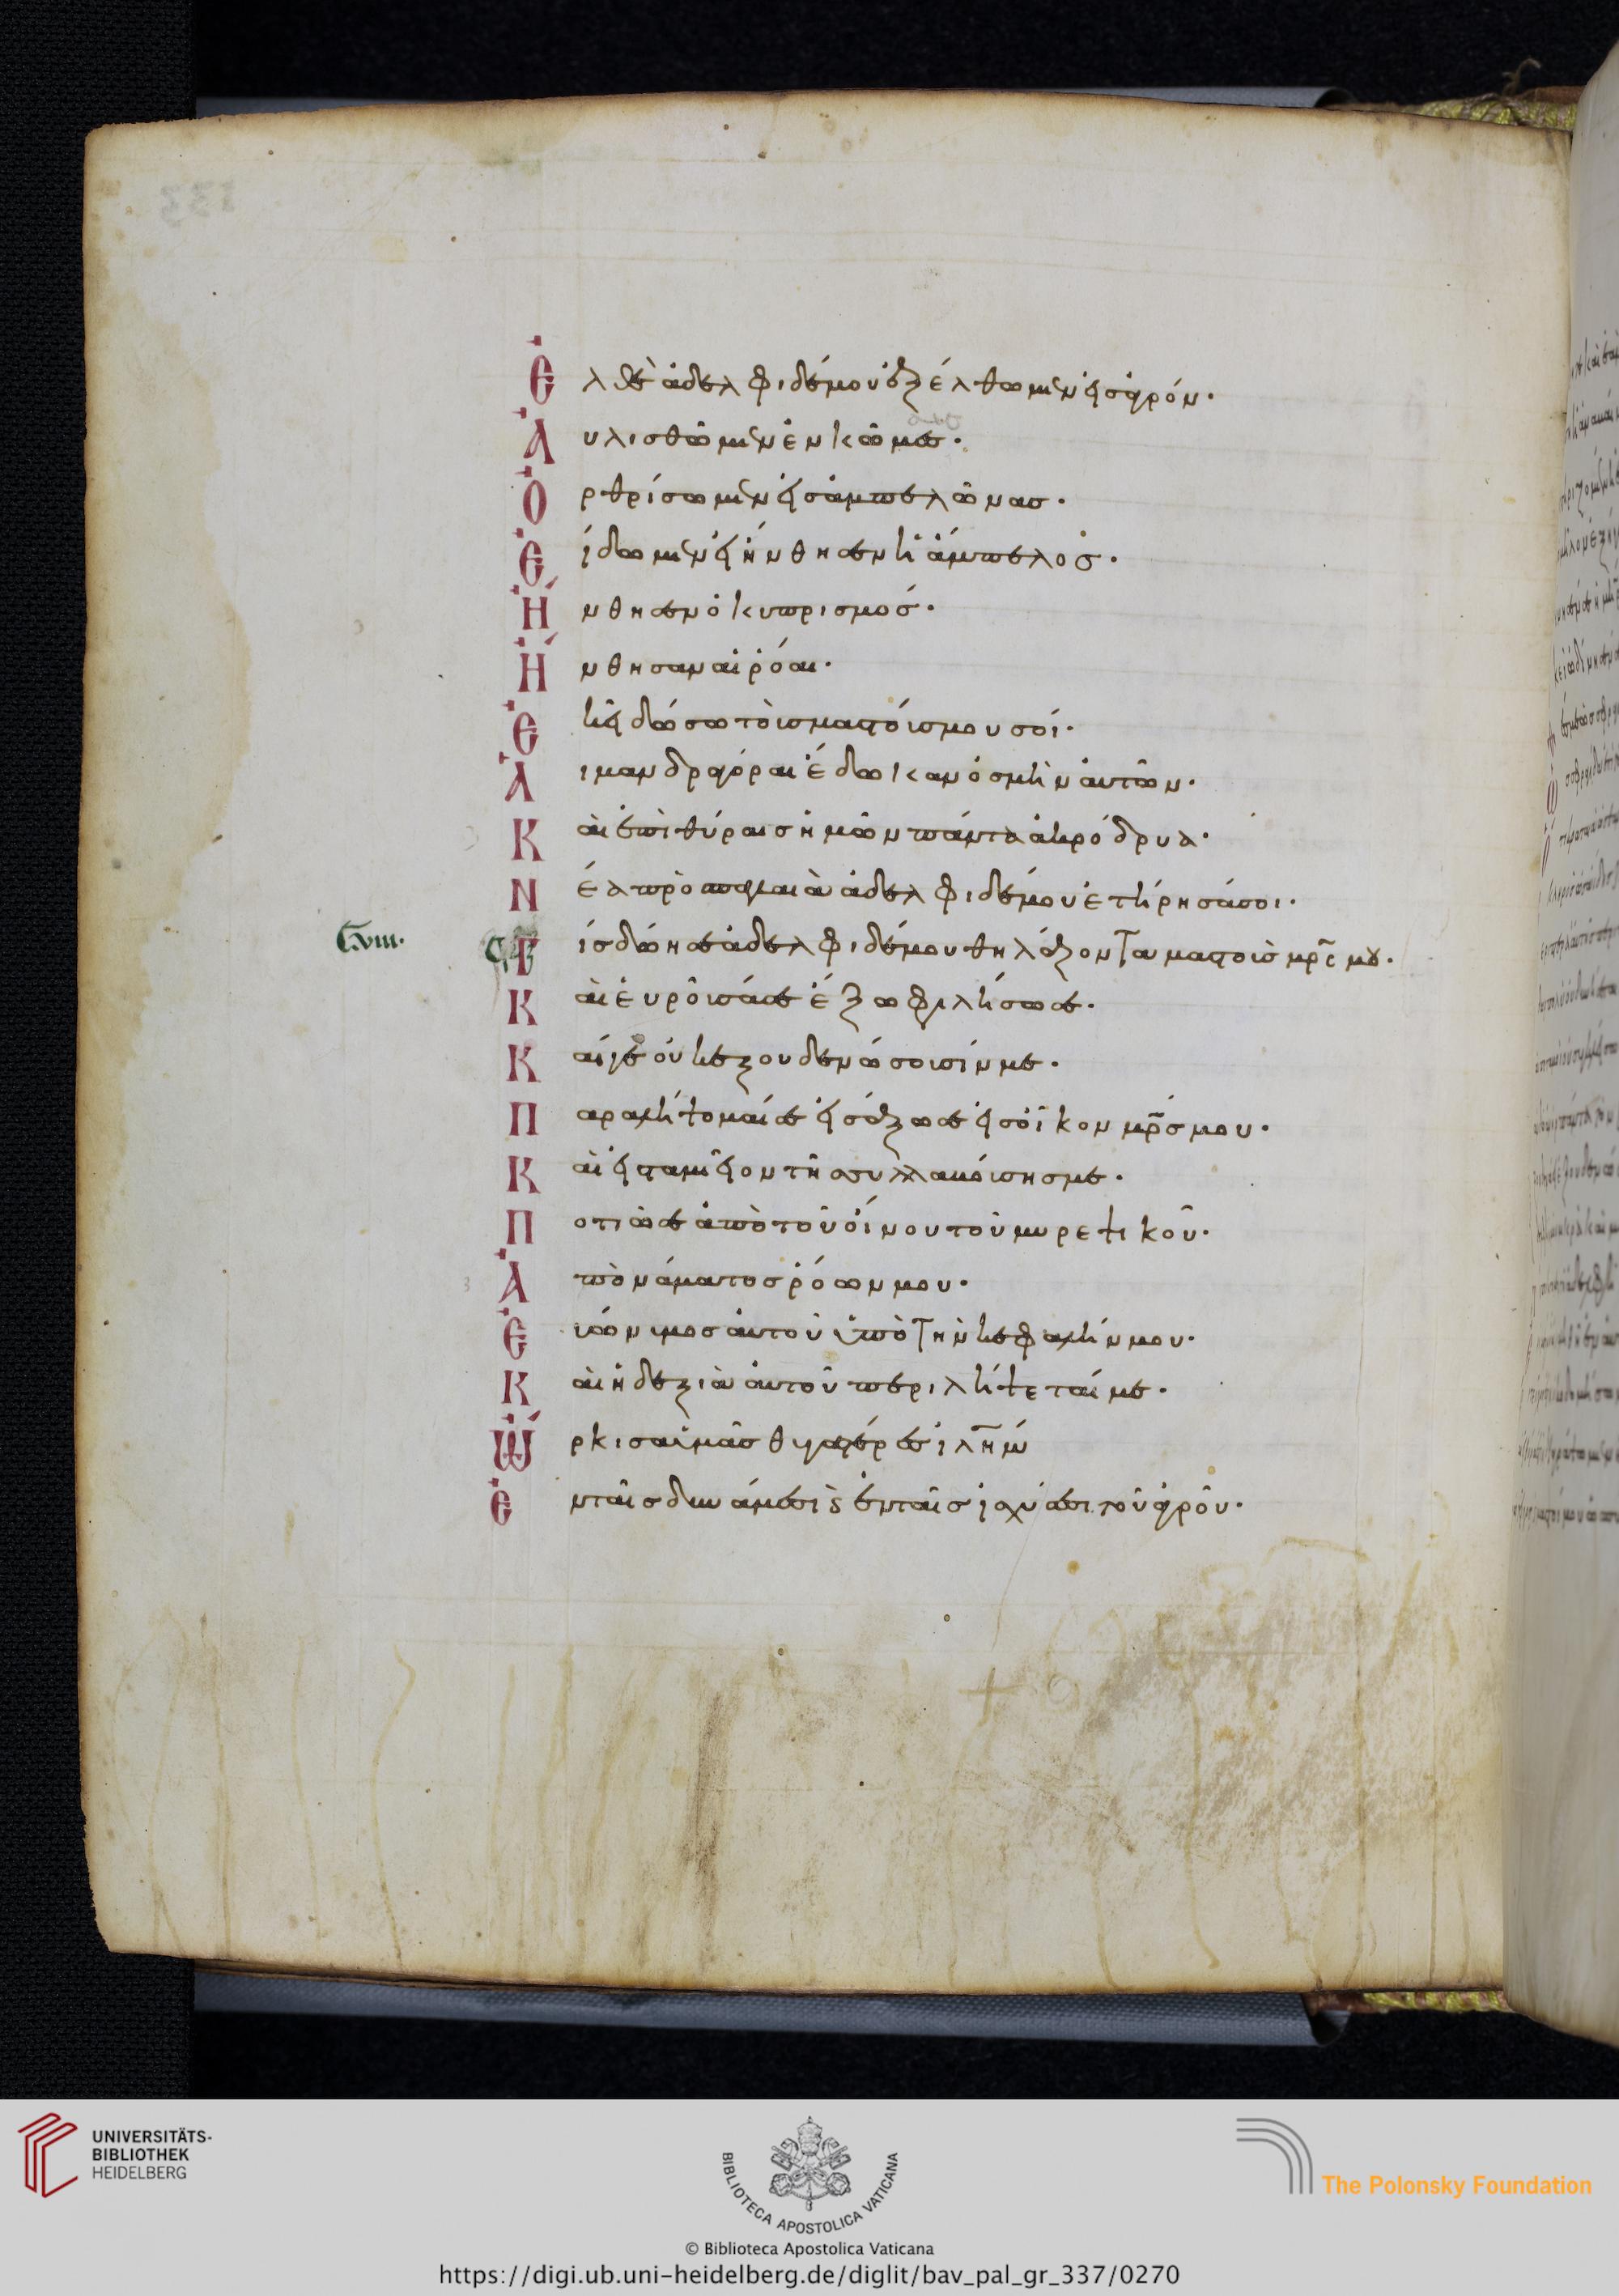 Ἐλθὲ ἀδελφιδέ μου ἐξέλθωμεν εἰς ἀγρόν·
Ἀυλισθῶμεν ἐν κώμαις·
Ὀρθρίσωμεν εἰς ἀμπελῶνας·
Ἐίδωμεν εἰ ἤνθησεν ἡ ἄμπελος·
Ἤνθησεν ὁ κυπρισμός·
Ἤνθησαν αἱ ῥόαι·
Ἐκεῖ δώσω τοὺς μαστούς μου σοί·
Ἁι μανδραγόραι ἔδωκαν ὀσμὴν ἀυτῶν·
Καὶ ἐπὶ θύραις ἡμῶν πάντα ἀκρόδρυα·
Νέα πρὸς παλαιὰ ἀδελφιδέ μου ἐτήρησά σοι·
C. viii.
Τίς δώη σε ἀδελφιδέ μου θηλάζοντα μαστοὺς μρς μου·
Καὶ ἑυροῦσά σε ἔξω φιλήσω σε·
Καί γε οὐκ ἐξουδενώσουσίν με·
Παραλήψομαί σε εἰσάξω σε εἰς οἶκον μρς μου·
Καὶ εἰς ταμεῖον τῆς συλλαβούσης με·
Ποτιῶ σε ἀπὸ τοῦ οἴνου τοῦ μυρεψικοῦ·
Ἀπὸ νάματος ῥόων μου·
Ἐυώνυμος ἀυτοῦ ὑπὸ τὴν κεφαλήν μου·
Καὶ ἡ δεξιὰ ἀυτοῦ περιλήψεταί με·
Ὥρκισα ὑμᾶς θυγατέρες ιλημ
Ἐν ταῖς δυνάμεσι καὶ ἐν ταῖς ἰσχύσεσι τοῦ ἀγροῦ·
UNIVERSITÄTS-
BIBLIOTHEK
HEIDELBERG
BIBLIOTECA APOSTOLICA VATICANA
The Polonsky Foundation
© Biblioteca Apostolica Vaticana
https://digi.ub.uni-heidelberg.de/diglit/bav_pal_gr_337/0270